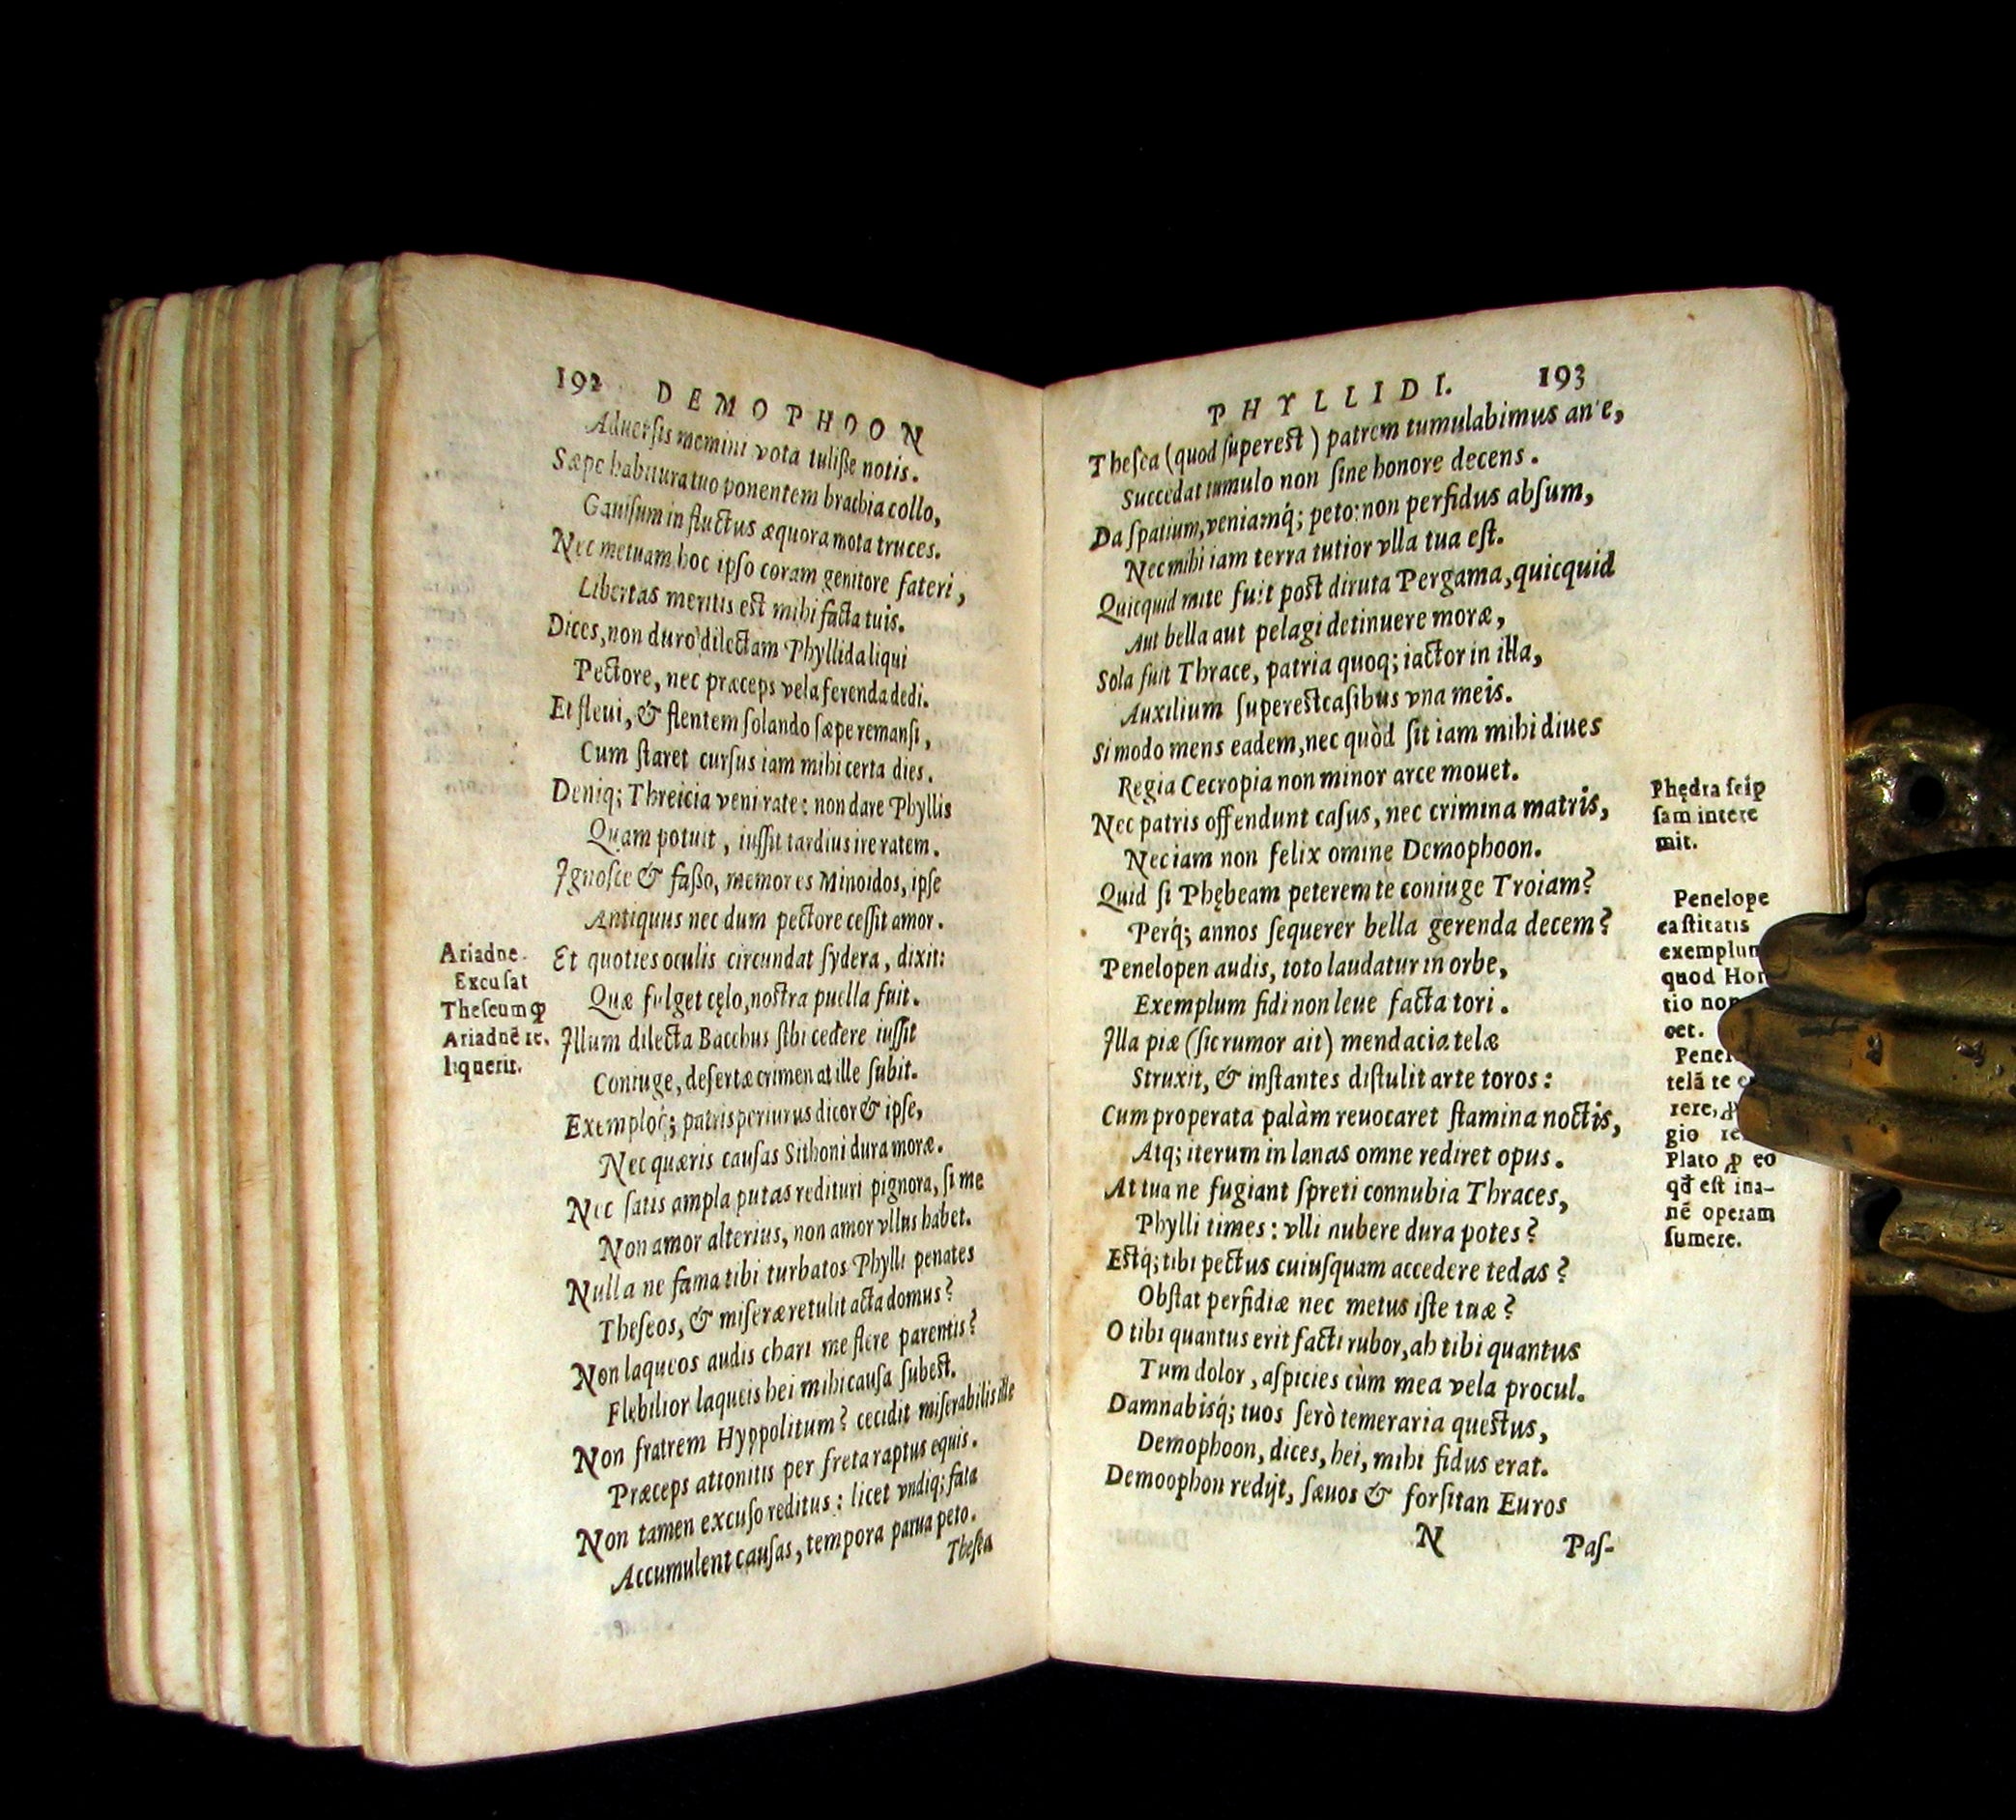 192 DEMOPHOON
Aduerſis memini vota tuliſſe notis.
Sæpe habitura tuo ponentem brachia collo,
Gauiſum in fluctus æquora mota truces.
Nec metuam hoc ipſo coram genitore fateri,
Libertas meritis est mihi facta tuis.
Dices, non duro dilectam Phyllida liqui
Pectore, nec præceps vela ferenda dedi.
Et fleui, & flentem ſolando ſæpe remanſi,
Cum ſtaret curſus iam mihi certa dies.
Deniq; Threicia veni rate: non dare Phyllis
Quam potuit, iuſſit tardius ire ratem.
Ignoſce & faſſo, memores Minoidos, ipſe
Antiquus nec dum pectore ceſſit amor.
Et quoties oculis circundat ſydera, dixit:
Quæ fulget cęlo, nostra puella fuit.
Illum dilecta Bacchus ſibi cedere iuſſit
Coniuge, deſertæ crimen at ille ſubit.
Exemploq́; patris periurus dicor & ipſe,
Nec quæris cauſas Sithoni dura moræ.
Nec ſatis ampla putas redituri pignora, ſi me
Non amor alterius, non amor vllus habet.
Nulla ne fama tibi turbatos Phylli penates
Theſeos, & miſeræ retulit acta domus?
Non laqueos audis chari me flere parentis?
Flebilior laqueis hei mihi cauſa ſubest.
Non fratrem Hyppolitum? cecidit miſerabilis ille
Præceps attonitis per freta raptus equis.
Non tamen excuſo reditus: licet vndiq; fata
Accumulent cauſas, tempora parua peto.
Theſea
Ariadne.
Excuſat
Theſeum ꝙ
Ariadnē re.
liquerit.
PHYLLIDI. 193
Theſea (quod ſuperest) patrem tumulabimus
Succedat tumulo non ſine honore decens.
Da ſpatium, veniamq́; peto: non perfidus abſum,
Nec mihi iam terra tutior vlla tua eſt.
Quicquid mite fuit post diruta Pergama, quicquid
Aut bella aut pelagi detinuere moræ,
Sola fuit Thrace, patria quoq; iactor in illa,
Auxilium ſuperest caſibus vna meis.
Si modo mens eadem, nec quòd ſit iam mihi diues
Regia Cecropia non minor arce mouet.
Nec patris offendunt caſus, nec crimina matris,
Nec iam non felix omine Demophoon.
Quid ſi Phębeam peterem te coniuge Troiam?
Perq́; annos ſequerer bella gerenda decem?
Penelopen audis, toto laudatur in orbe,
Exemplum fidi non leue facta tori.
Illa piæ (ſic rumor ait) mendacia telæ
Struxit, & inſtantes diſtulit arte toros:
Cum properata palàm reuocaret ſtamina noctis,
Atq; iterum in lanas omne rediret opus.
At tua ne fugiant ſpreti connubia Thraces,
Phylli times: vlli nubere dura potes?
Estq́; tibi pectus cuiuſquam accedere tedas?
Obſtat perfidiæ nec metus iſte tuæ?
O tibi quantus erit facti rubor, ah tibi quantus
Tum dolor, aſpicies cùm mea vela procul.
Damnabisq́; tuos ſerò temeraria questus,
Demophoon, dices, hei, mihi fidus erat.
Demoophon redijt, ſæuos & forſitan Euros
N Paſ-
Phędra ſeip
ſam intere
mit.
Penelope
caſtitatis
exemplum
quod
tio
cet.
telā te
rere,
gio
Plato ꝓ eo
qđ eſt ina-
nē operam
ſumere.